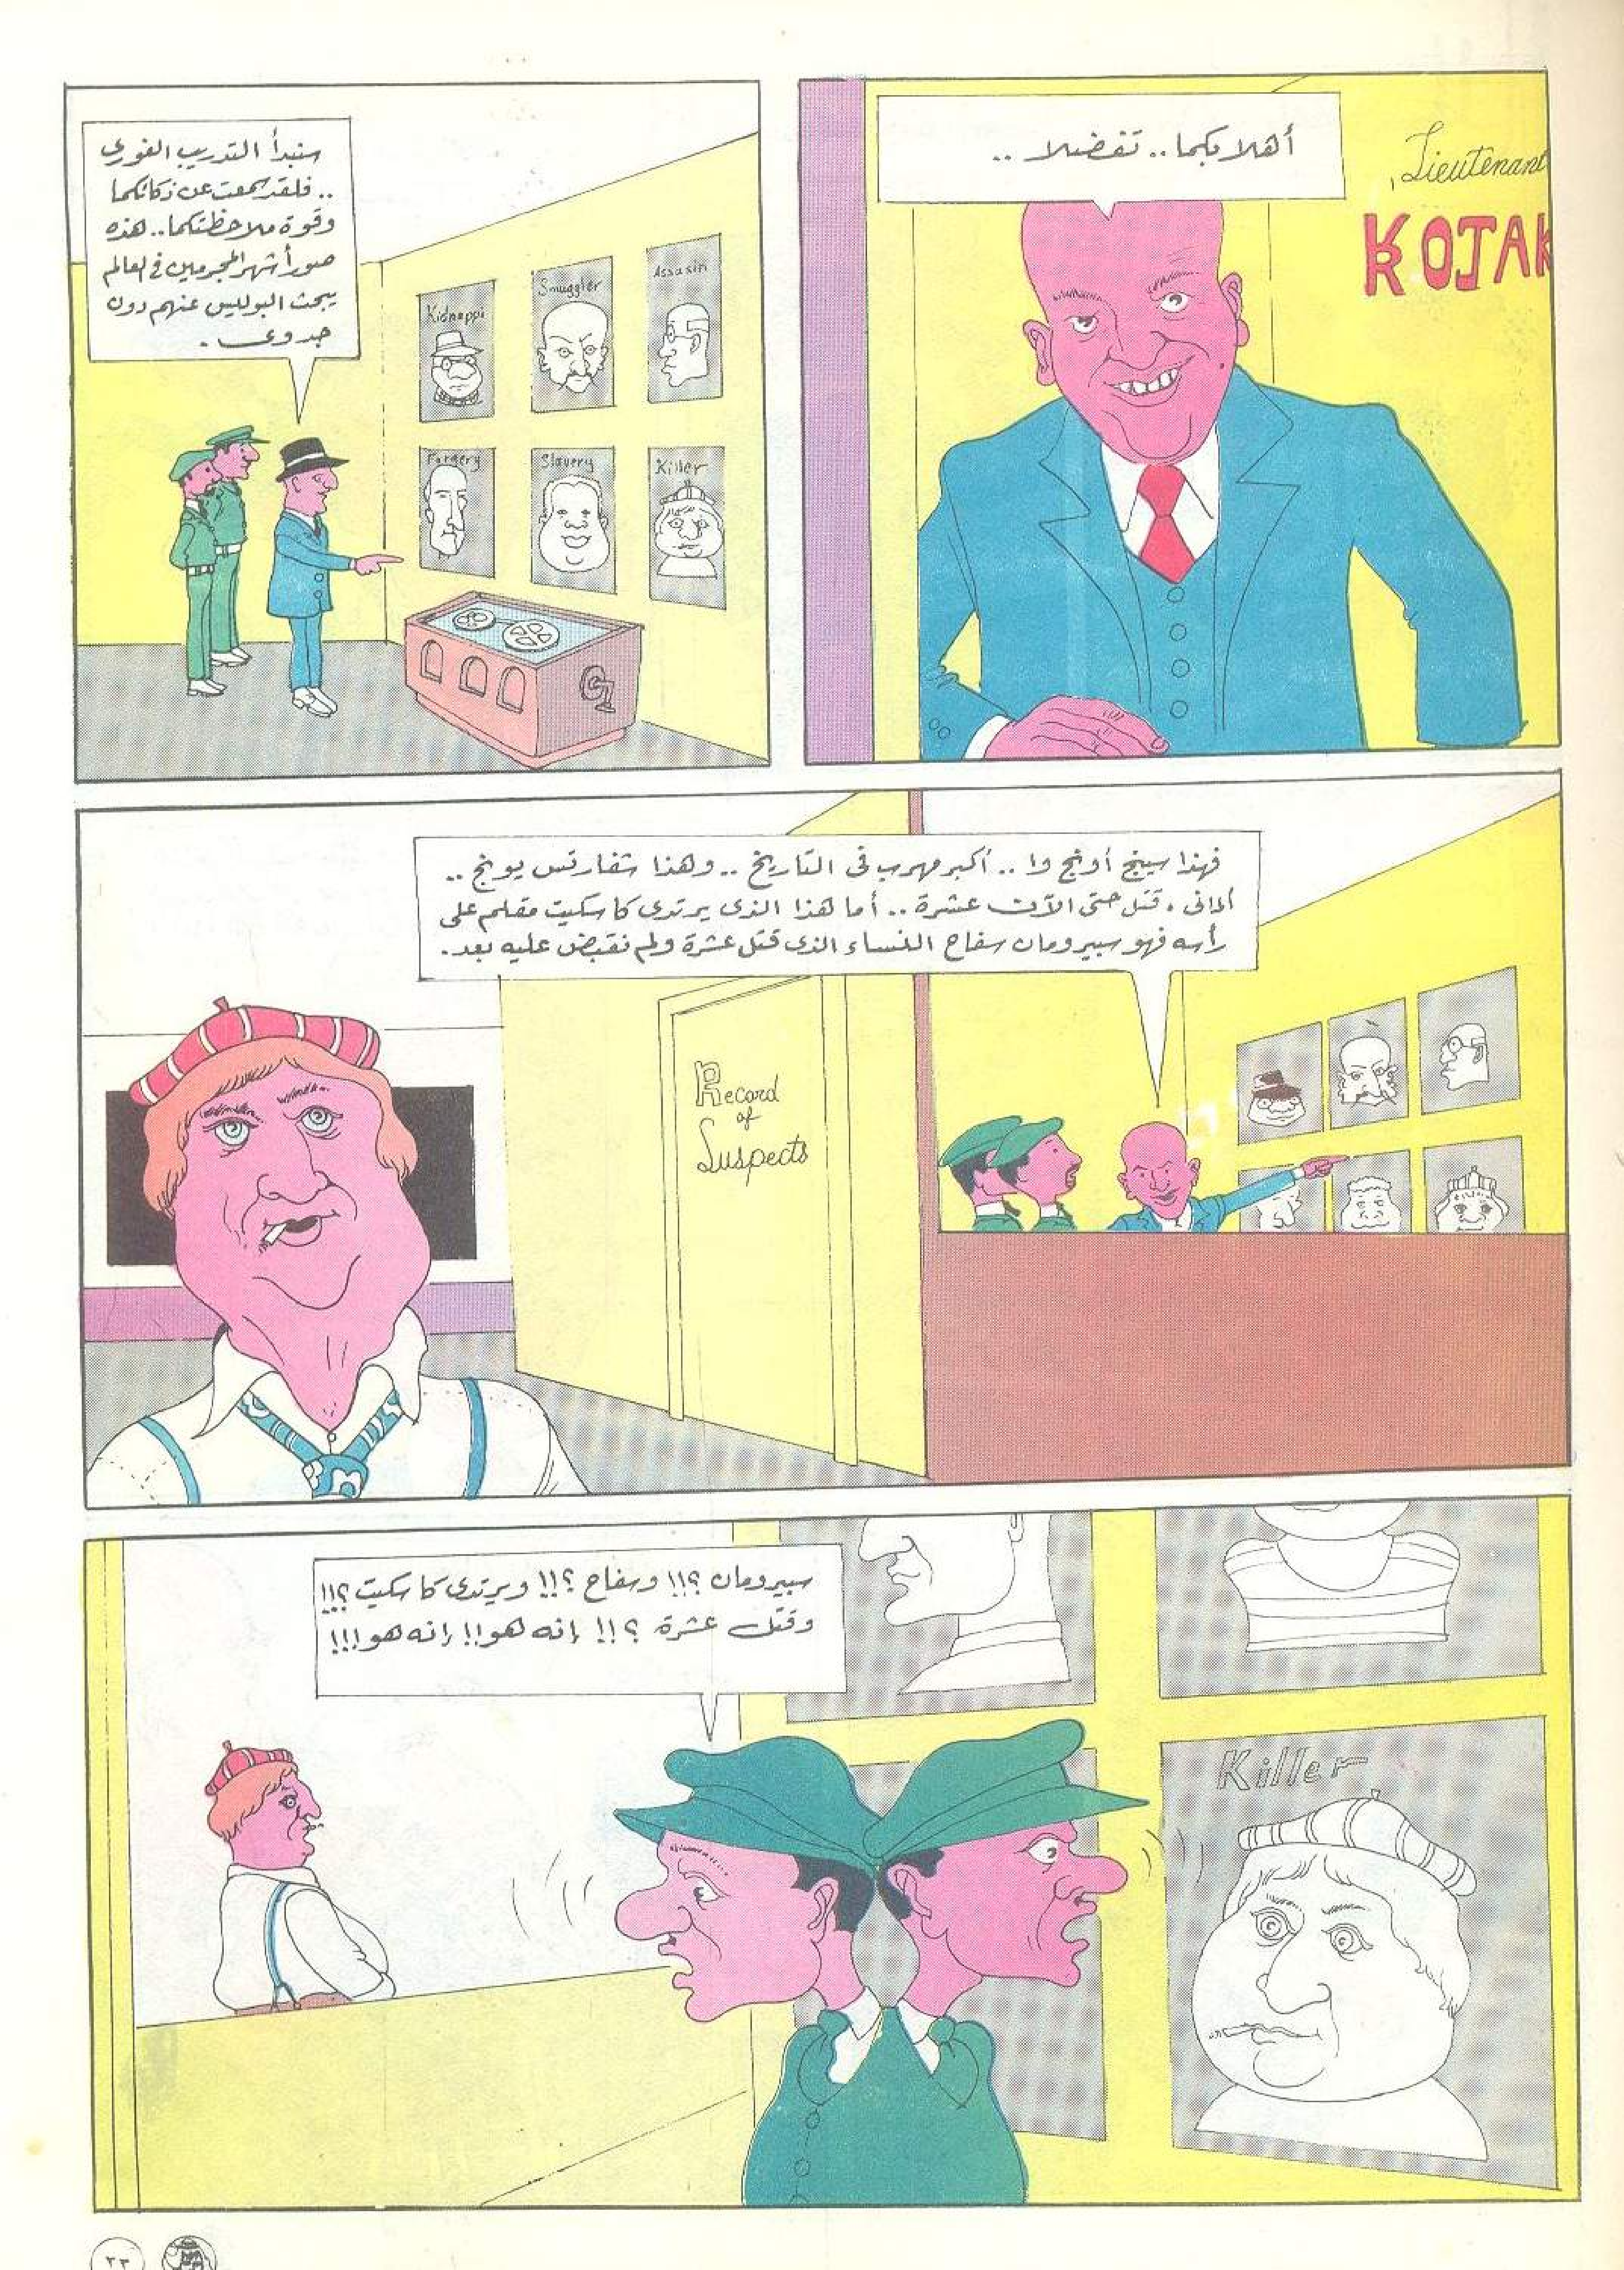 أهلا بكما.. تفضلا ..
Lieutenant
KOJAK
سنبدأ التدريب الفورى
.. فلقد سمعت عن ذكائكما
وقوة ملاحظتكما.. هذه
صور أشهر المجرمين فى العالم
يبحث البوليس عنهم دون
جدوى .
Kidnappi
Smuggler
Assasin
Forgery
Slavery
Killer
فهذا سينج أونج وا .. أكبر مهرب فى التاريخ .. وهذا شفارتس يونج ..
ألمانى ، قتل حتى الآن عشرة .. أما هذا الذى يرتدى كاسكيت مقلم على
رأسه فهو سبيرومان سفاح النساء الذى قتل عشرة ولم نقبض عليه بعد.
Record
of
Suspects
سبيرومان ؟!! وسفاح ؟!! ويرتدى كاسكيت ؟!!
وقتل عشرة ؟!! إنه هو!! إنه هو!!!
Killer
٢٣